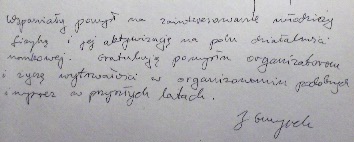 Wspaniały pomysł na zainteresowanie młodzieży
fizyką i jej aktywizację na polu działalności
naukowej. Gratuluję pomysłu organizatorom
i życzę wytrwałości w organizowaniu podobnych
imprez w przyszłych latach.